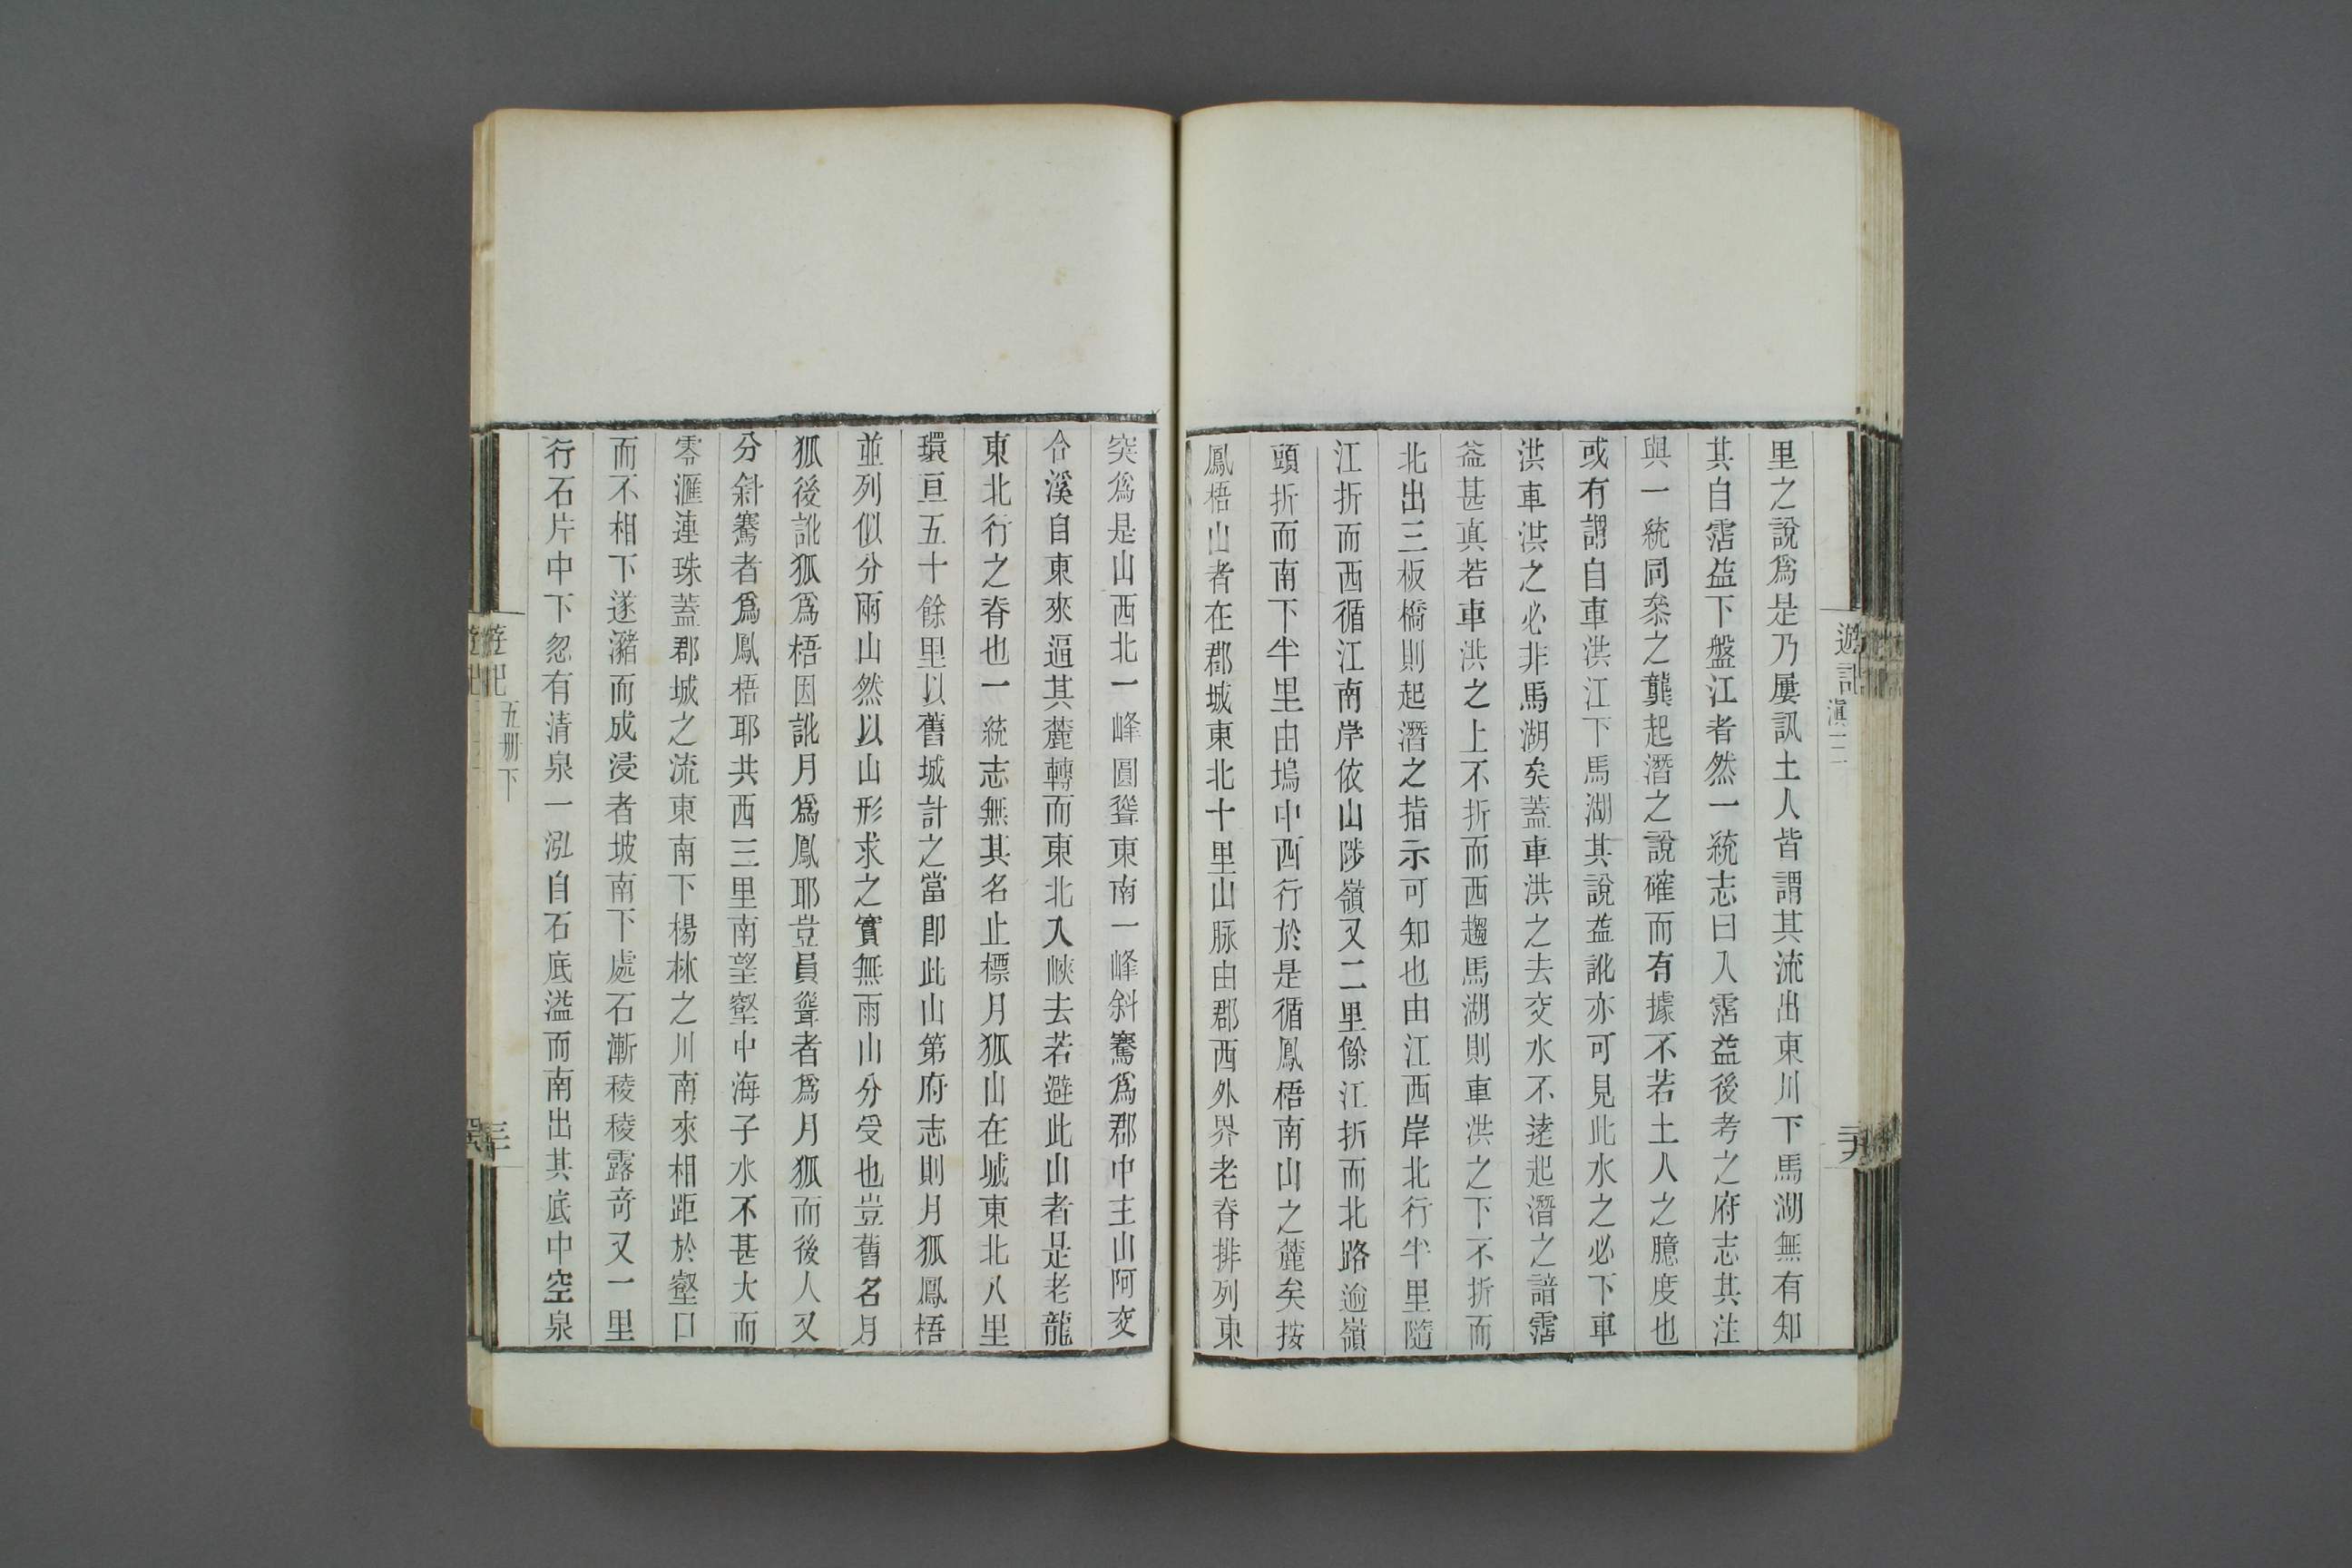 遊記
滇三
里之說爲是乃屢訊土人皆謂其流出東川下馬湖無有知
其自霑益下盤江者然一統志曰入霑益後考之府志其注
與一統同叅之龔起潛之說確而有據不若土人之臆度也
或有謂自車洪江下馬湖其說益訛亦可見此水之必下車
洪車洪之必非馬湖矣蓋車洪之去交水不逺起潛之諳霑
益甚真若車洪之上不折而西趨馬湖則車洪之下不折而
北出三板橋則起潛之指示可知也由江西岸北行半里隨
江折而西循江南岸依山陟嶺又二里餘江折而北路逾嶺
頭折而南下半里由塢中西行於是循鳳梧南山之麓矣按
鳳梧山者在郡城東北十里山脉由郡西外界老脊排列東
突爲是山西北一峰圓聳東南一峰斜騫爲郡中主山阿交
合溪自東來逼其麓轉而東北入峽去若避此山者是老龍
東北行之脊也一統志無其名止標月狐山在城東北八里
環亘五十餘里以舊城計之當卽此山第府志則月狐鳳梧
並列似分兩山然以山形求之實無兩山分受也豈舊名月
狐後訛狐爲梧因訛月爲鳳耶豈員聳者爲月狐而後人又
分斜騫者爲鳳梧耶共西三里南望壑中海子水不甚大而
零滙連珠蓋郡城之流東南下楊林之川南來相距於壑口
而不相下遂瀦而成浸者坡南下處石漸稜稜露奇又一里
行石片中下忽有清泉一泓自石底溢而南出其底中空泉
遊記
五册下